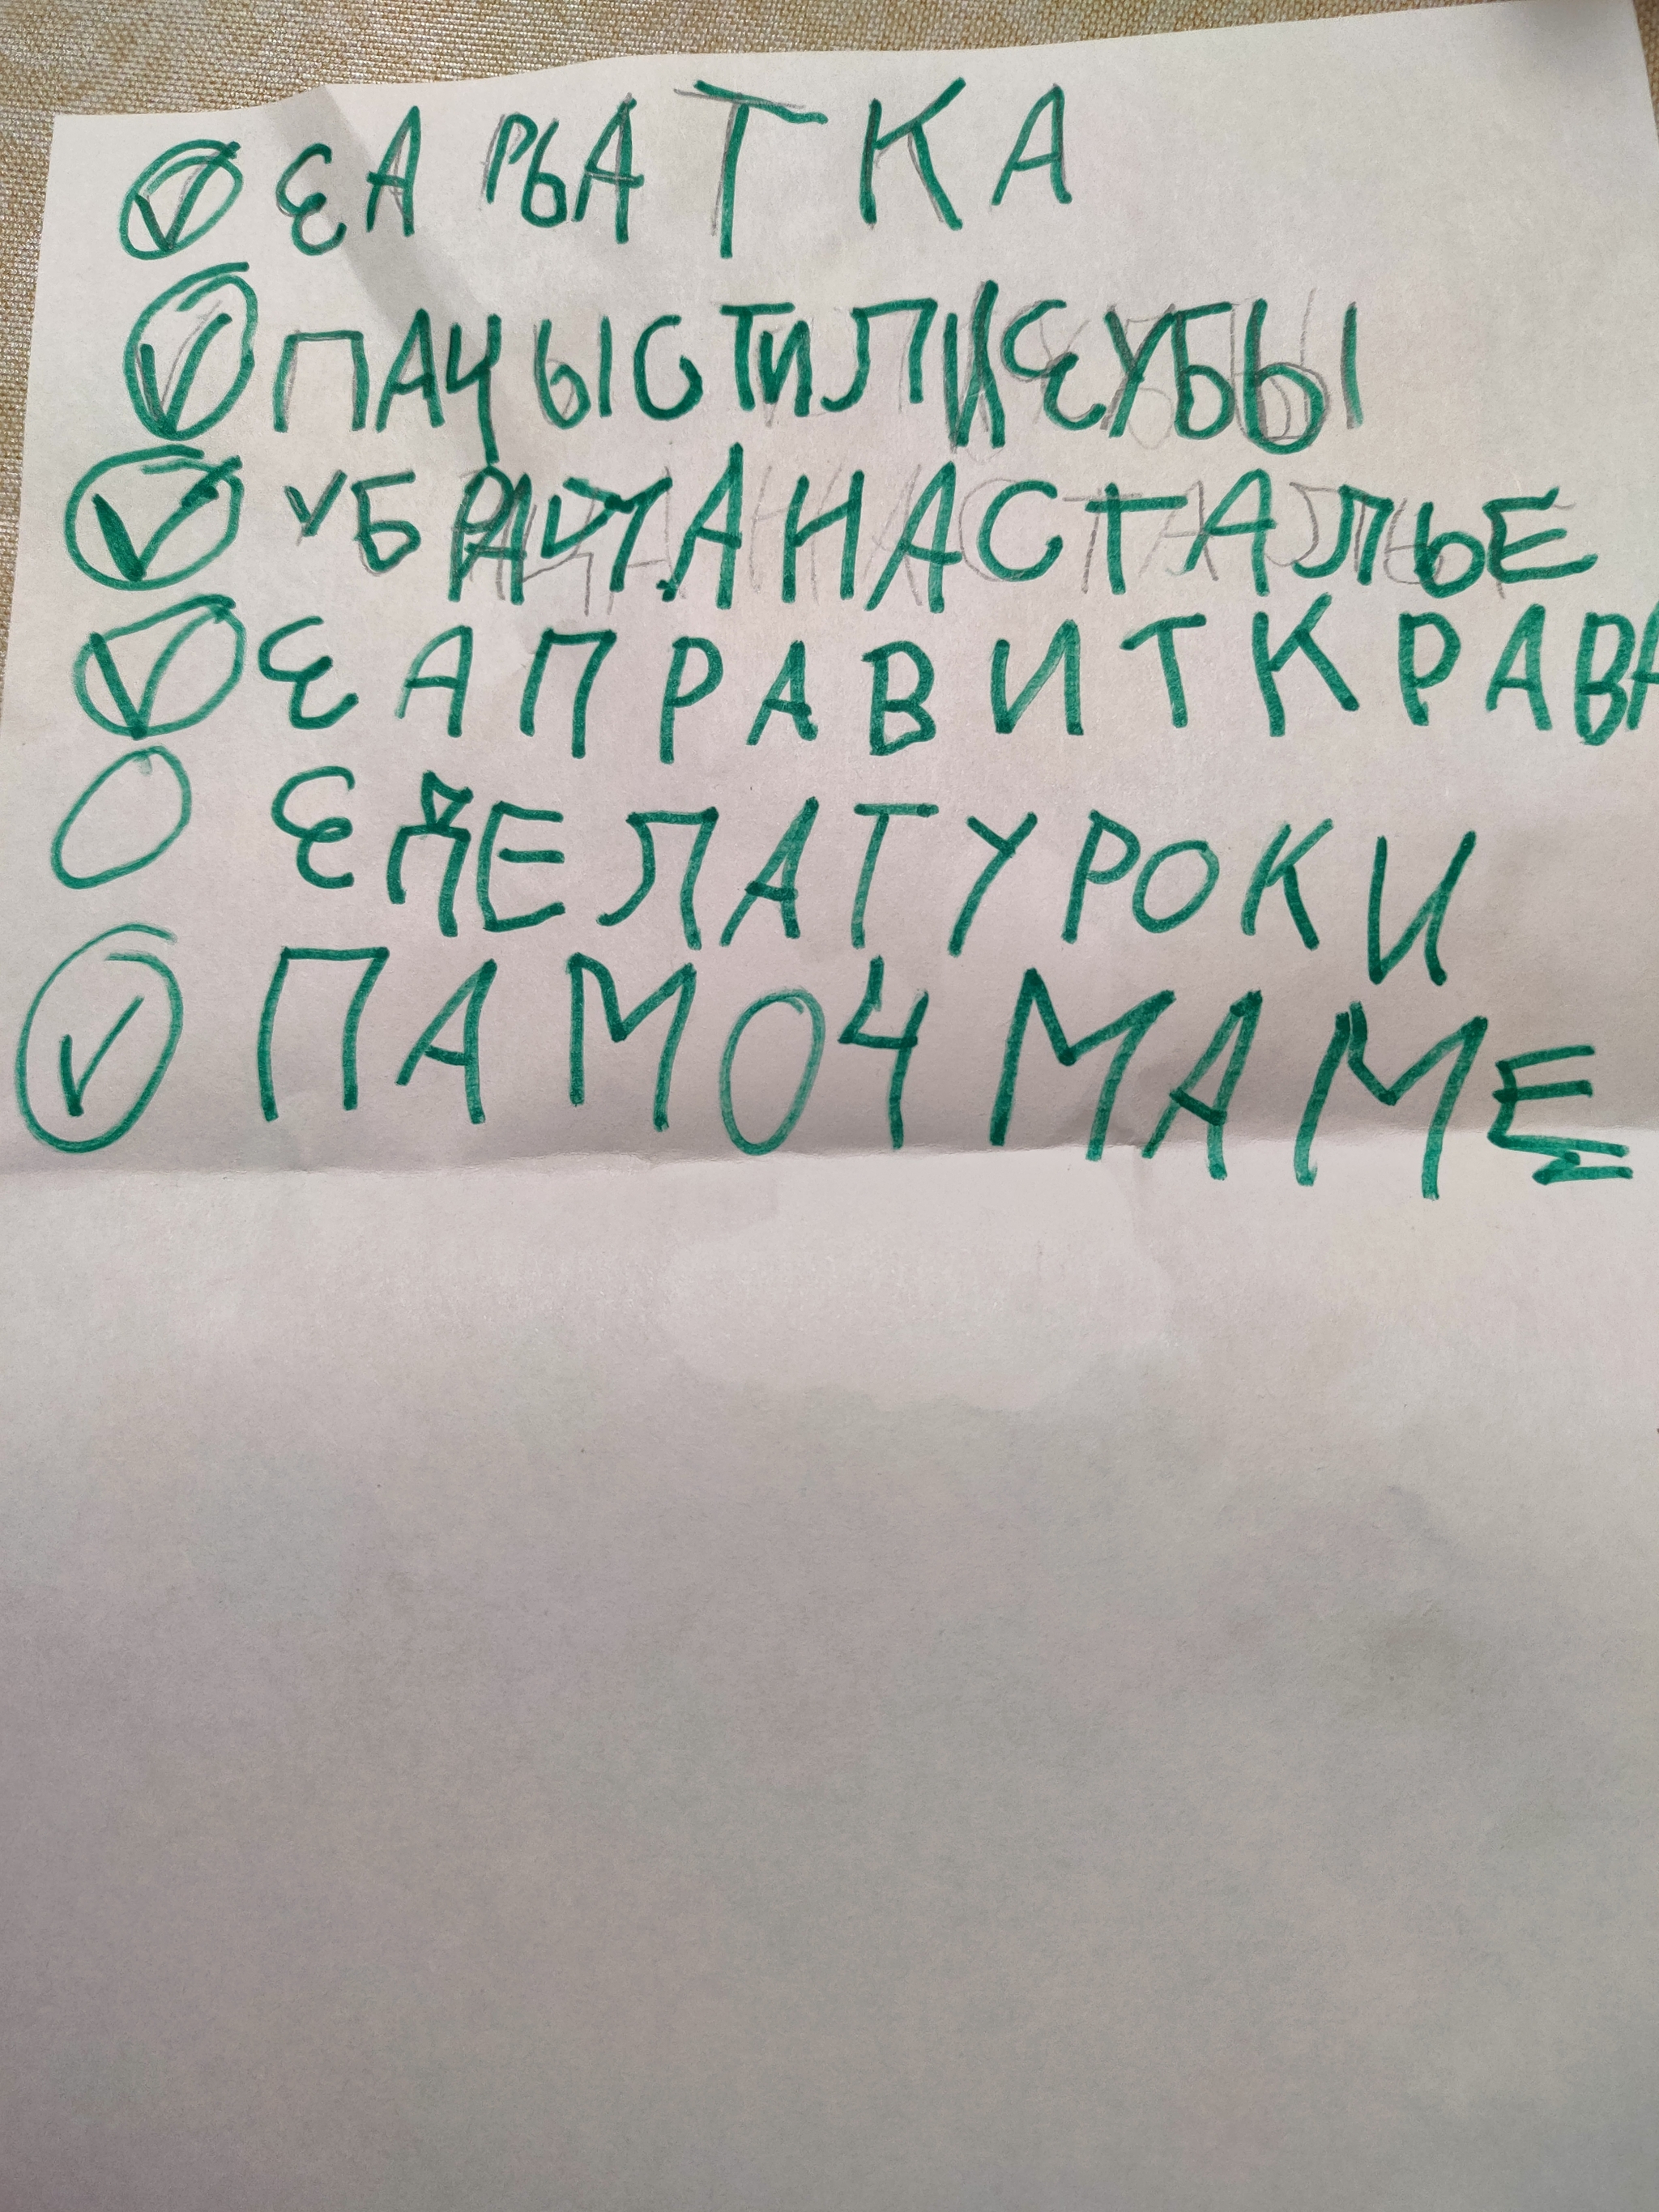 ЗАРЬАТКА
ПАЧЫСТИЛИ ЗУБЫ
НА СТАЛЬЕ
ЗАПРАВИТ КРАВА
ЗДЕЛАТ УРОКИ
ПАМОЧ МАМЕ